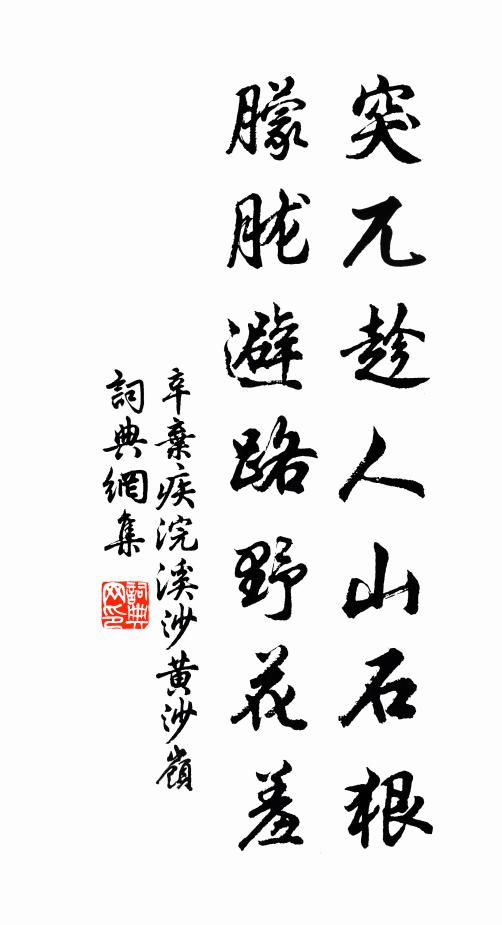 突兀趁人山石狠
朦胧避路野花羞
辛棄疾浣溪沙黄沙嶺
詞典網集
詞典网印